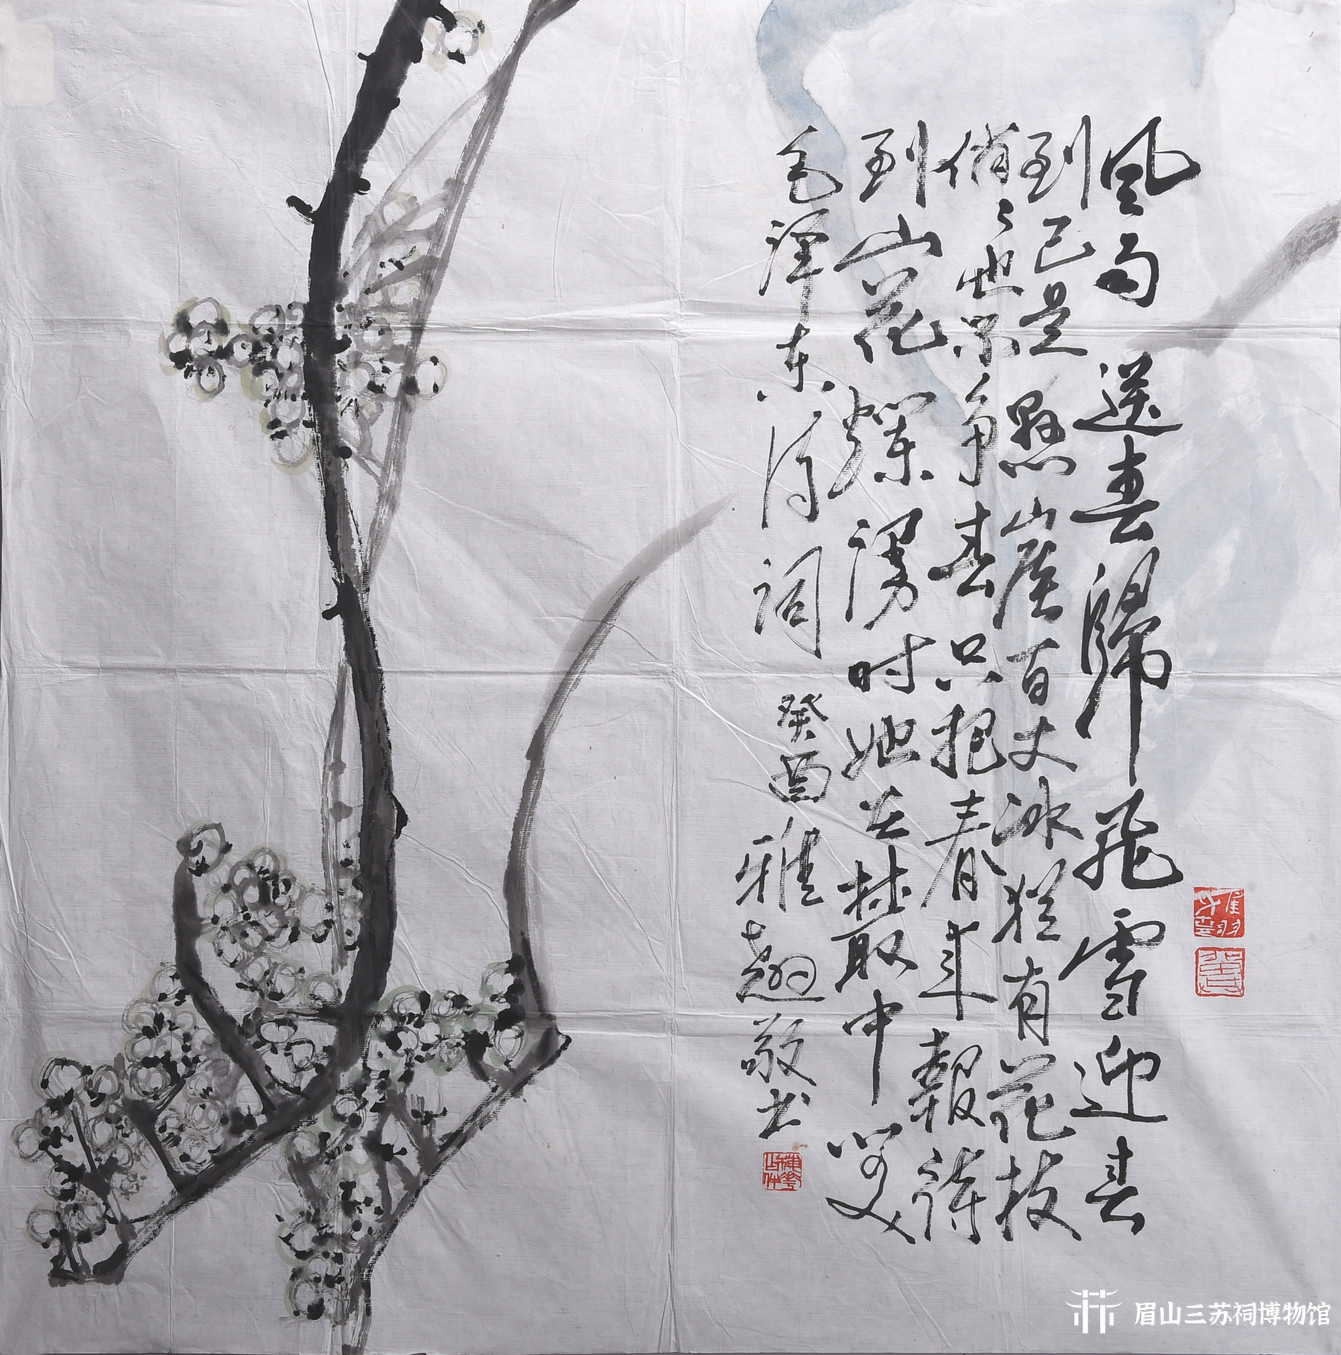 風雨送春歸飛雪迎春
到已是懸崖百丈冰犹有花枝
俏〻也不争春只把春来報待
到山花爛漫时她在叢中笑
毛澤东诗词 癸酉雅翹敬书
眉山三苏祠博物馆